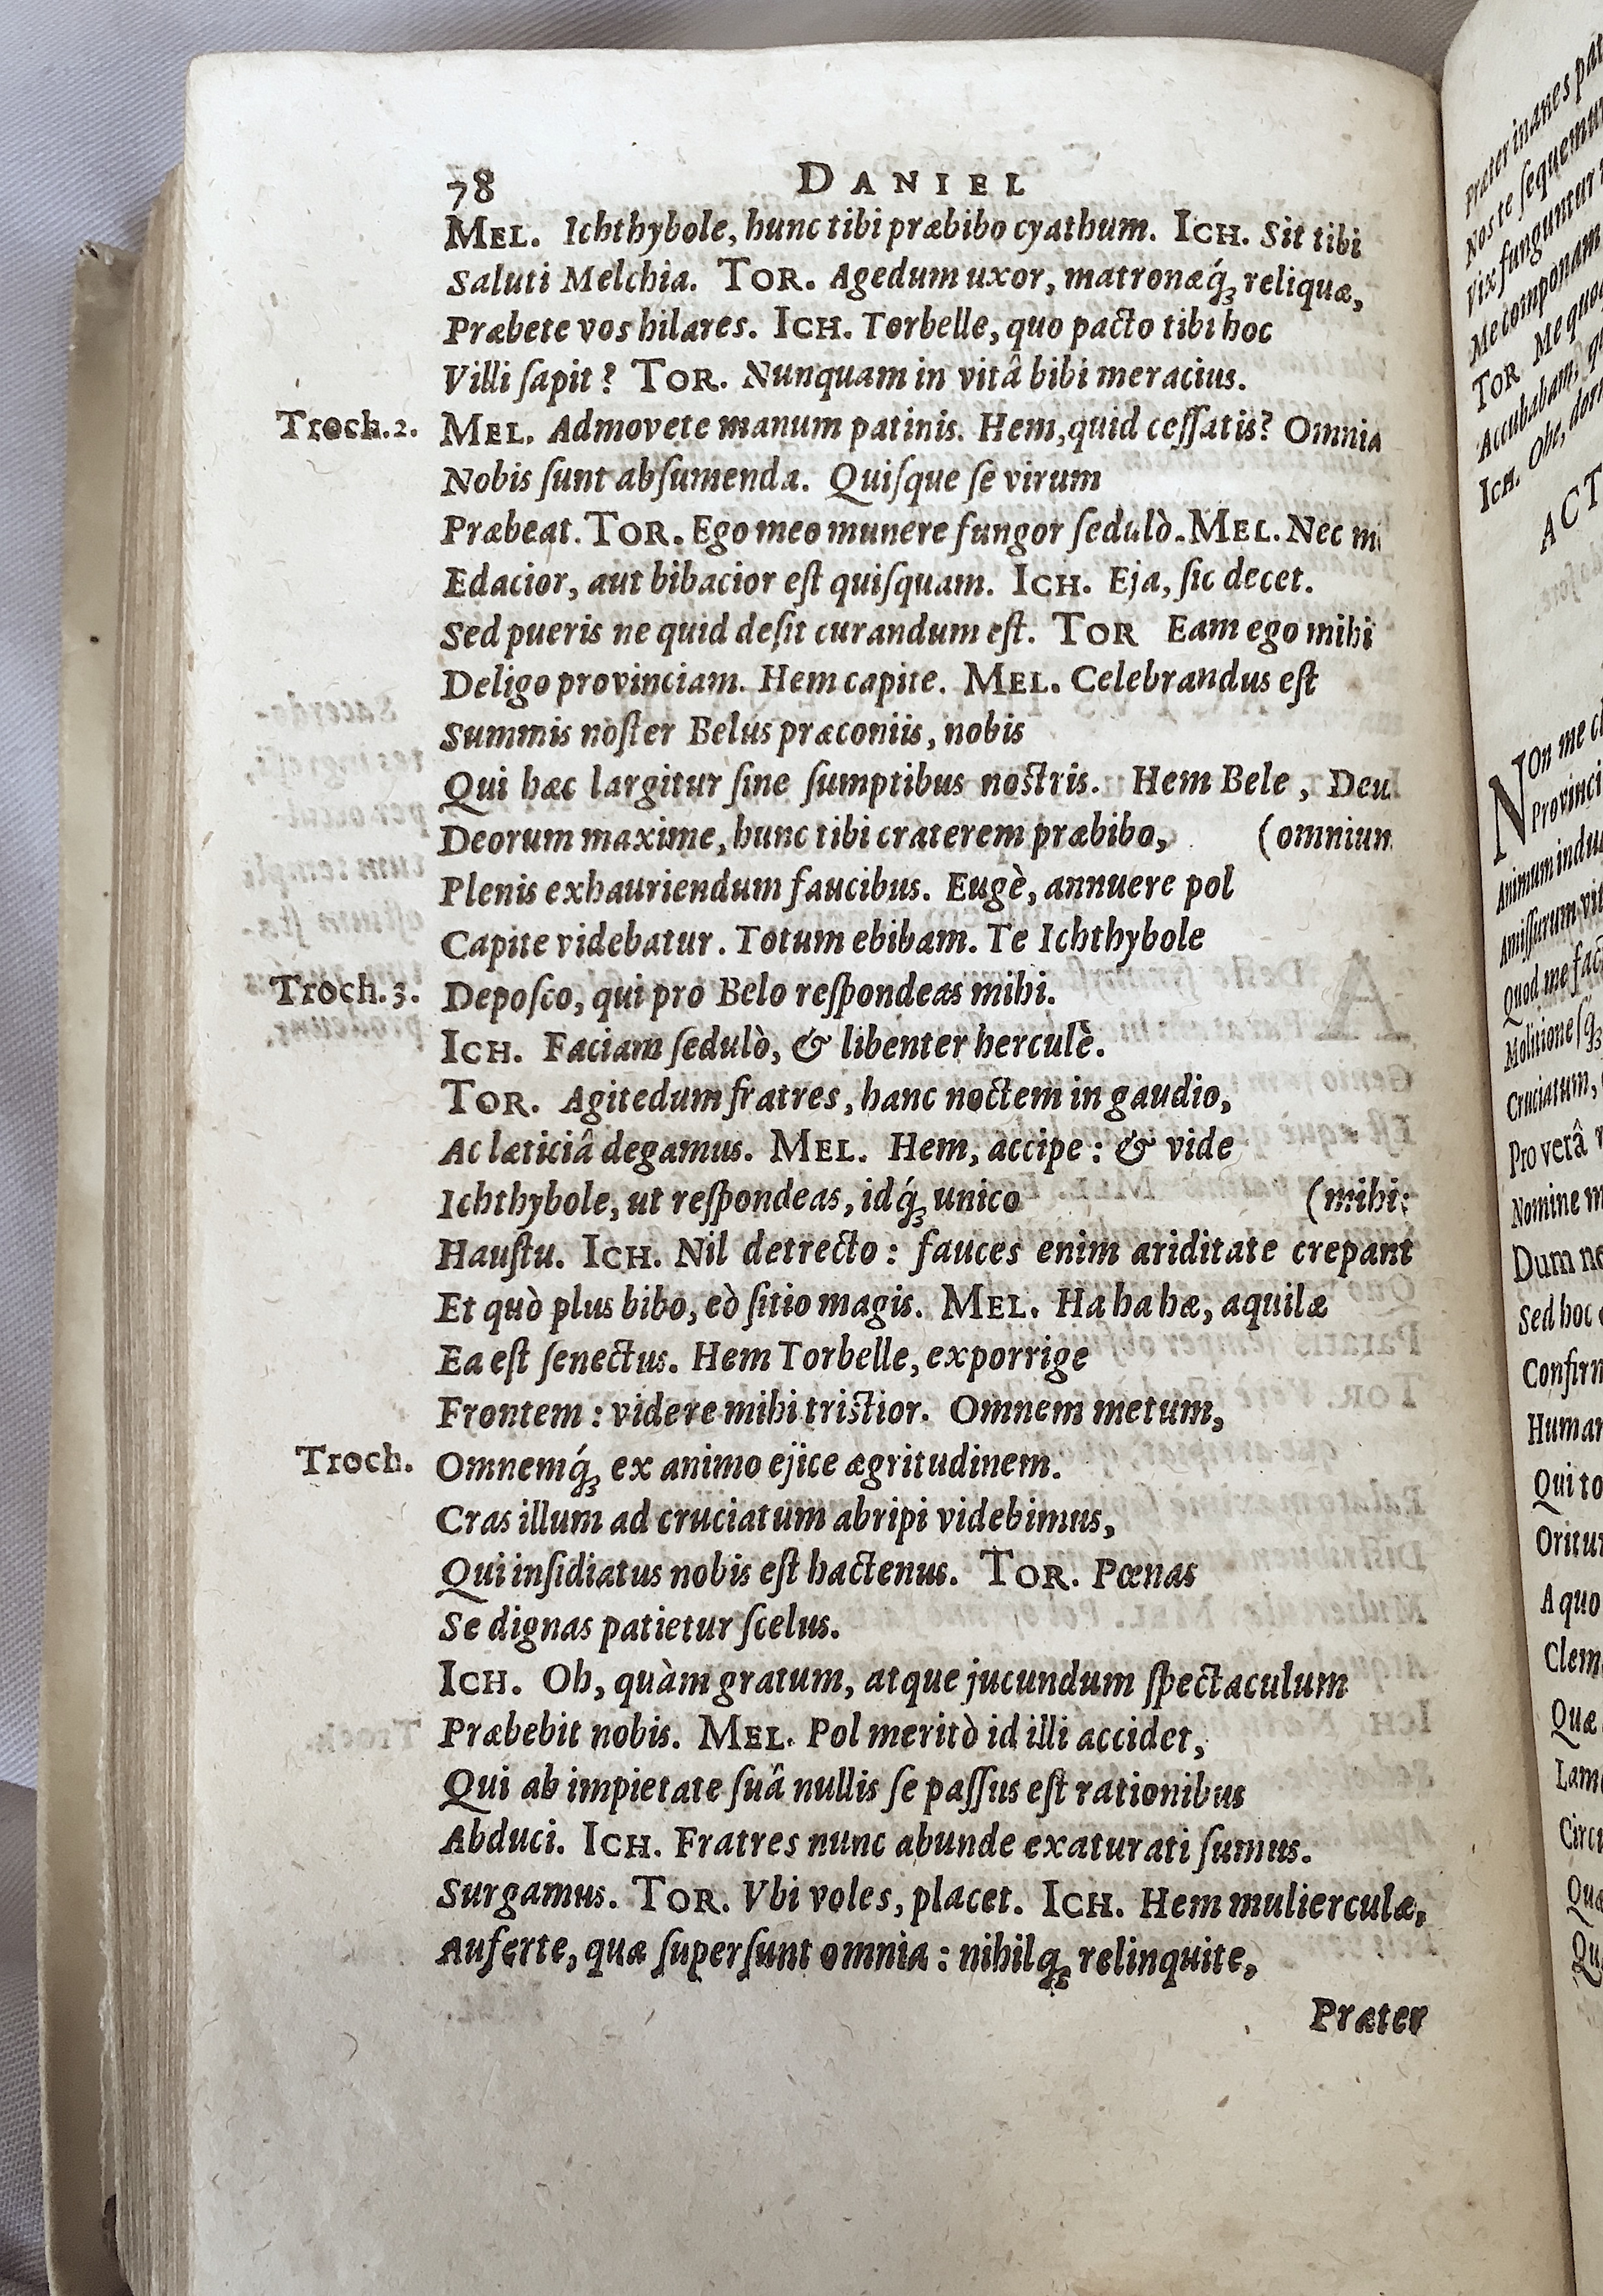 78 DANIEL
MEL. Ichthybole, hunc tibi præbibo cyathum. ICH. Sit tibi
Saluti Melchia. TOR. Agedum uxor, matronæq́ꝫ reliquæ,
Præbete vos hilares. ICH. Torbelle, quo pacto tibi hoc
Villi ſapit? TOR. Nunquam in vitâ bibi meracius.
Troch.2. MEL. Admovete manum patinis. Hem, quid ceſſatis? Omnia
Nobis ſunt abſumenda. Quiſque ſe virum
Præbeat. TOR. Ego meo munere fungor ſedulò. MEL. Nec
Edacior, aut bibacior eſt quiſquam. ICH. Eja, ſic decet.
Sed pueris ne quid deſit curandum eſt. TOR Eam ego mihi
Deligo provinciam. Hem capite. MEL. Celebrandus eſt
Summis noſter Belus præconiis, nobis
Qui hæc largitur ſine ſumptibus noſtris. Hem Bele,
Deorum maxime, hunc tibi craterem præbibo, (
Plenis exhauriendum faucibus. Eugè, annuere pol
Capite videbatur. Totum ebibam. Te Ichthybole
Troch.3. Depoſco, qui pro Belo reſpondeas mihi.
ICH. Faciam ſedulò, & libenter herculè.
TOR. Agitedum fratres, hanc noctem in gaudio,
Ac læticiâ degamus. MEL. Hem, accipe: & vide
Ichthybole, ut reſpondeas, idq́ꝫ unico (mihi:
Hauſtu. ICH. Nil detrecto: fauces enim ariditate crepant
Et quò plus bibo, eò ſitio magis. MEL. Ha ha hæ, aquilæ
Ea eſt ſenectus. Hem Torbelle, exporrige
Frontem: videre mihi triſtior. Omnem metum,
Troch. Omnemq́ꝫ ex animo ejice ægritudinem.
Cras illum ad cruciatum abripi videbimus,
Qui inſidiatus nobis eſt hactenus. TOR. Pœnas
Se dignas patietur ſcelus.
ICH. Oh, quàm gratum, atque jucundum ſpectaculum
Præbebit nobis. MEL. Pol meritò id illi accidet,
Qui ab impietate ſuâ nullis ſe paſſus eſt rationibus
Abduci. ICH. Fratres nunc abunde exaturati ſumus.
Surgamus. TOR. Vbi voles, placet. ICH. Hem mulierculæ,
Auferte, quæ ſuperſunt omnia: nihilqꝫ relinquite,
Præter
Præter inanes
Nos te ſequemur
Vix funguntur
Me componam
TOR Me quoq
Accubabam,
ICH. Ohe,
ACT
NOn me
Animum
Amiſſurum
Quod me
Molitione ſqꝫ
Cruciatum,
Pro verâ
Nomine
Dum
Sed hoc
Confirm
Human
Qui
Oritur
A quo
Clem
Quæ
Lam
Circ